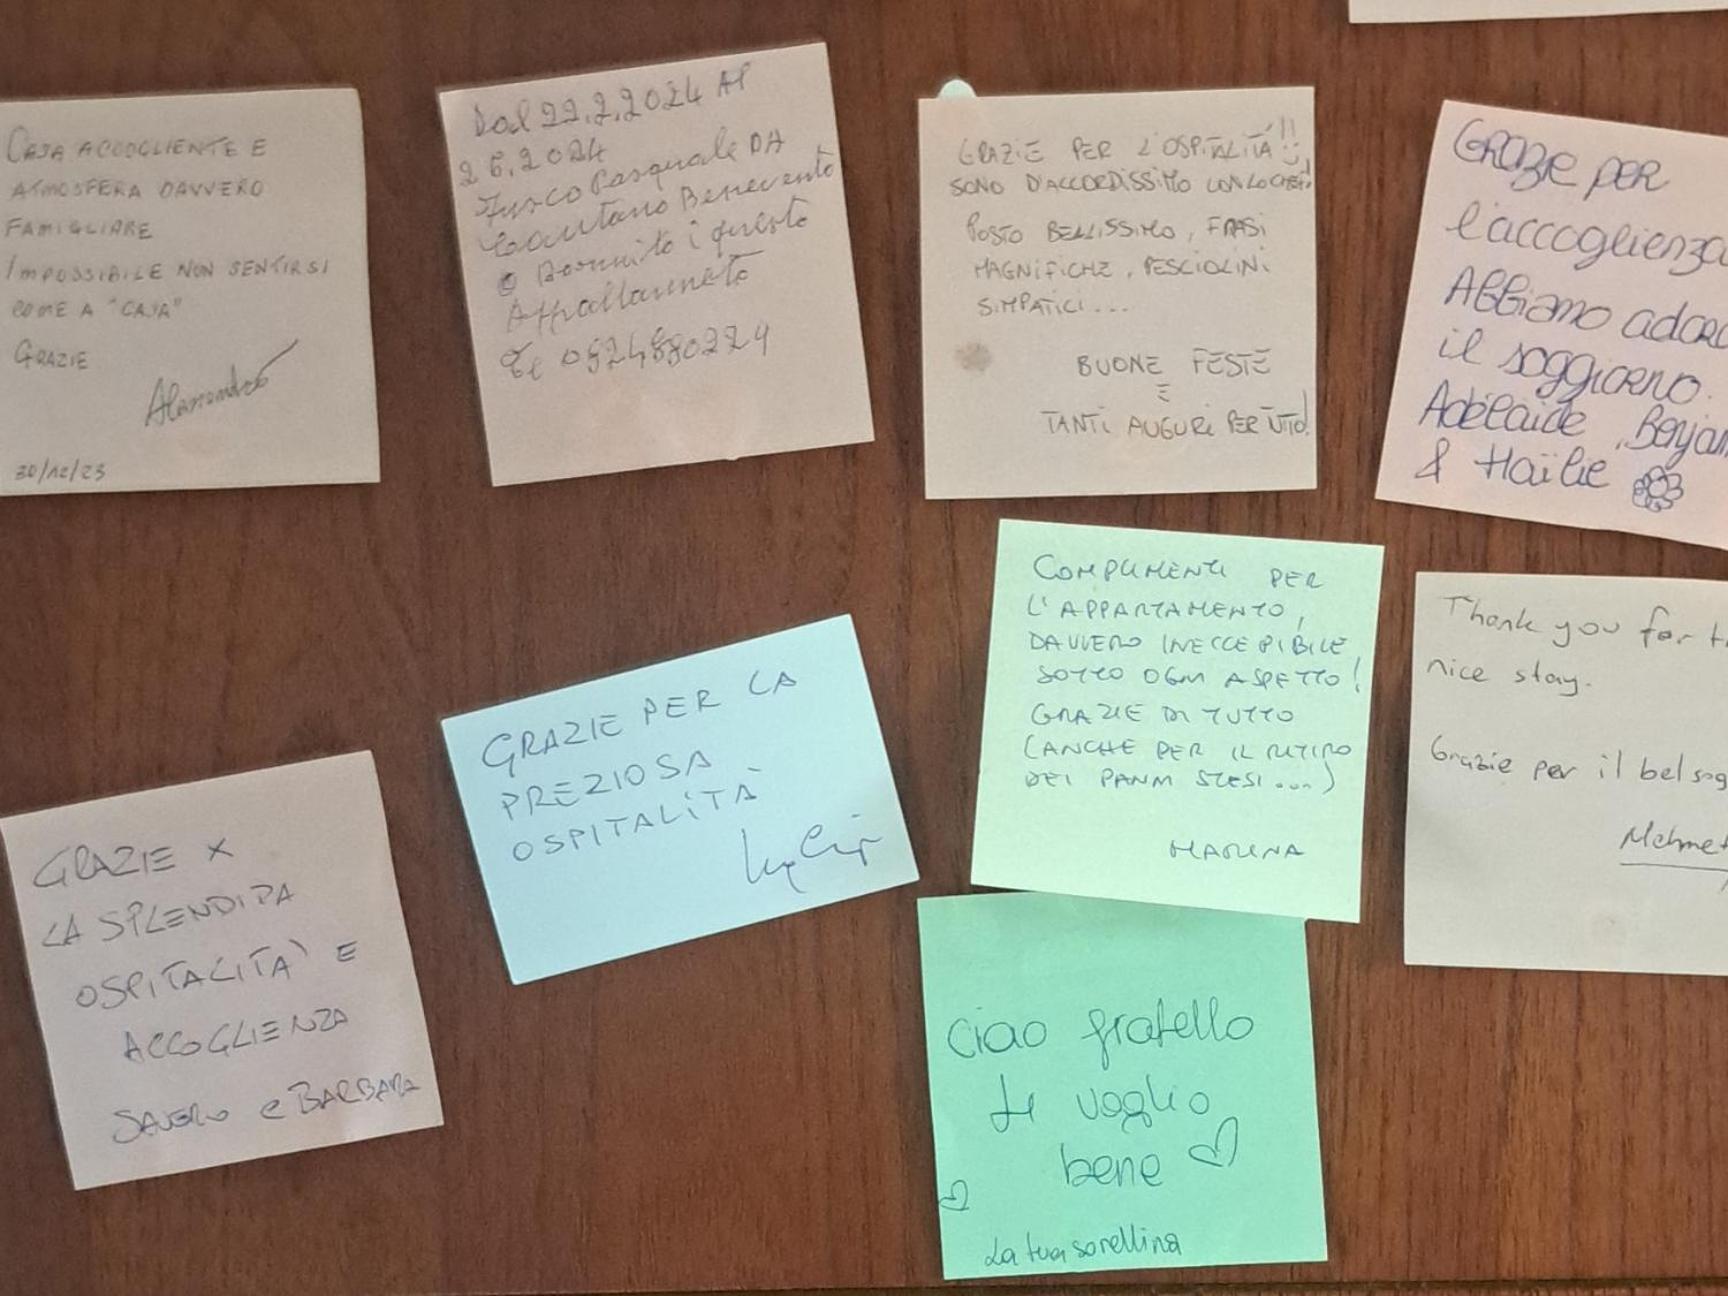 CASA ACCOGLIENTE E
ATMOSFERA DAVVERO
FAMIGLIARE
IMPOSSIBILE NON SENTIRSI
COME A "CASA"
GRAZIE
Alessandro
30/12/23
Dal 22.2.2024 Al
26.2024
Fusco Pasquale DA
Benevento
Dormito i questo
Appartamento
Te 0524880224
GRAZIE PER L'OSPITALITÁ!!
SONO D'ACCORDISSIMO CON LO CHEF!
POSTO BELLISSIMO, FRASI
MAGNIFICHE, PESCIOLINI
SIMPATICI...
BUONE FESTE
E
TANTI AUGURI PER TUTTO!
GRAZIE PER
l'accoglienza
Abbiamo ador
il soggiorno.
Adélaïde, Benjam
& Haïlie
COMPLIMENTI PER
L'APPARTAMENTO,
DAVVERO INECCEPIBILE
SOTTO OGNI ASPETTO!
GRAZIE DI TUTTO
(ANCHE PER IL RITIRO
DEI PANNI STESI...)
MARINA
Thank you for th
nice stay.
Grazie per il bel sog
Mehmet
GRAZIE PER LA
PREZIOSA
OSPITALITÀ
GRAZIE X
LA SPLENDIDA
OSPITALITA' E
ACCOGLIENZA
SAVERIO e BARBARA
Ciao fratello
ti voglio
bene
La tua sorellina